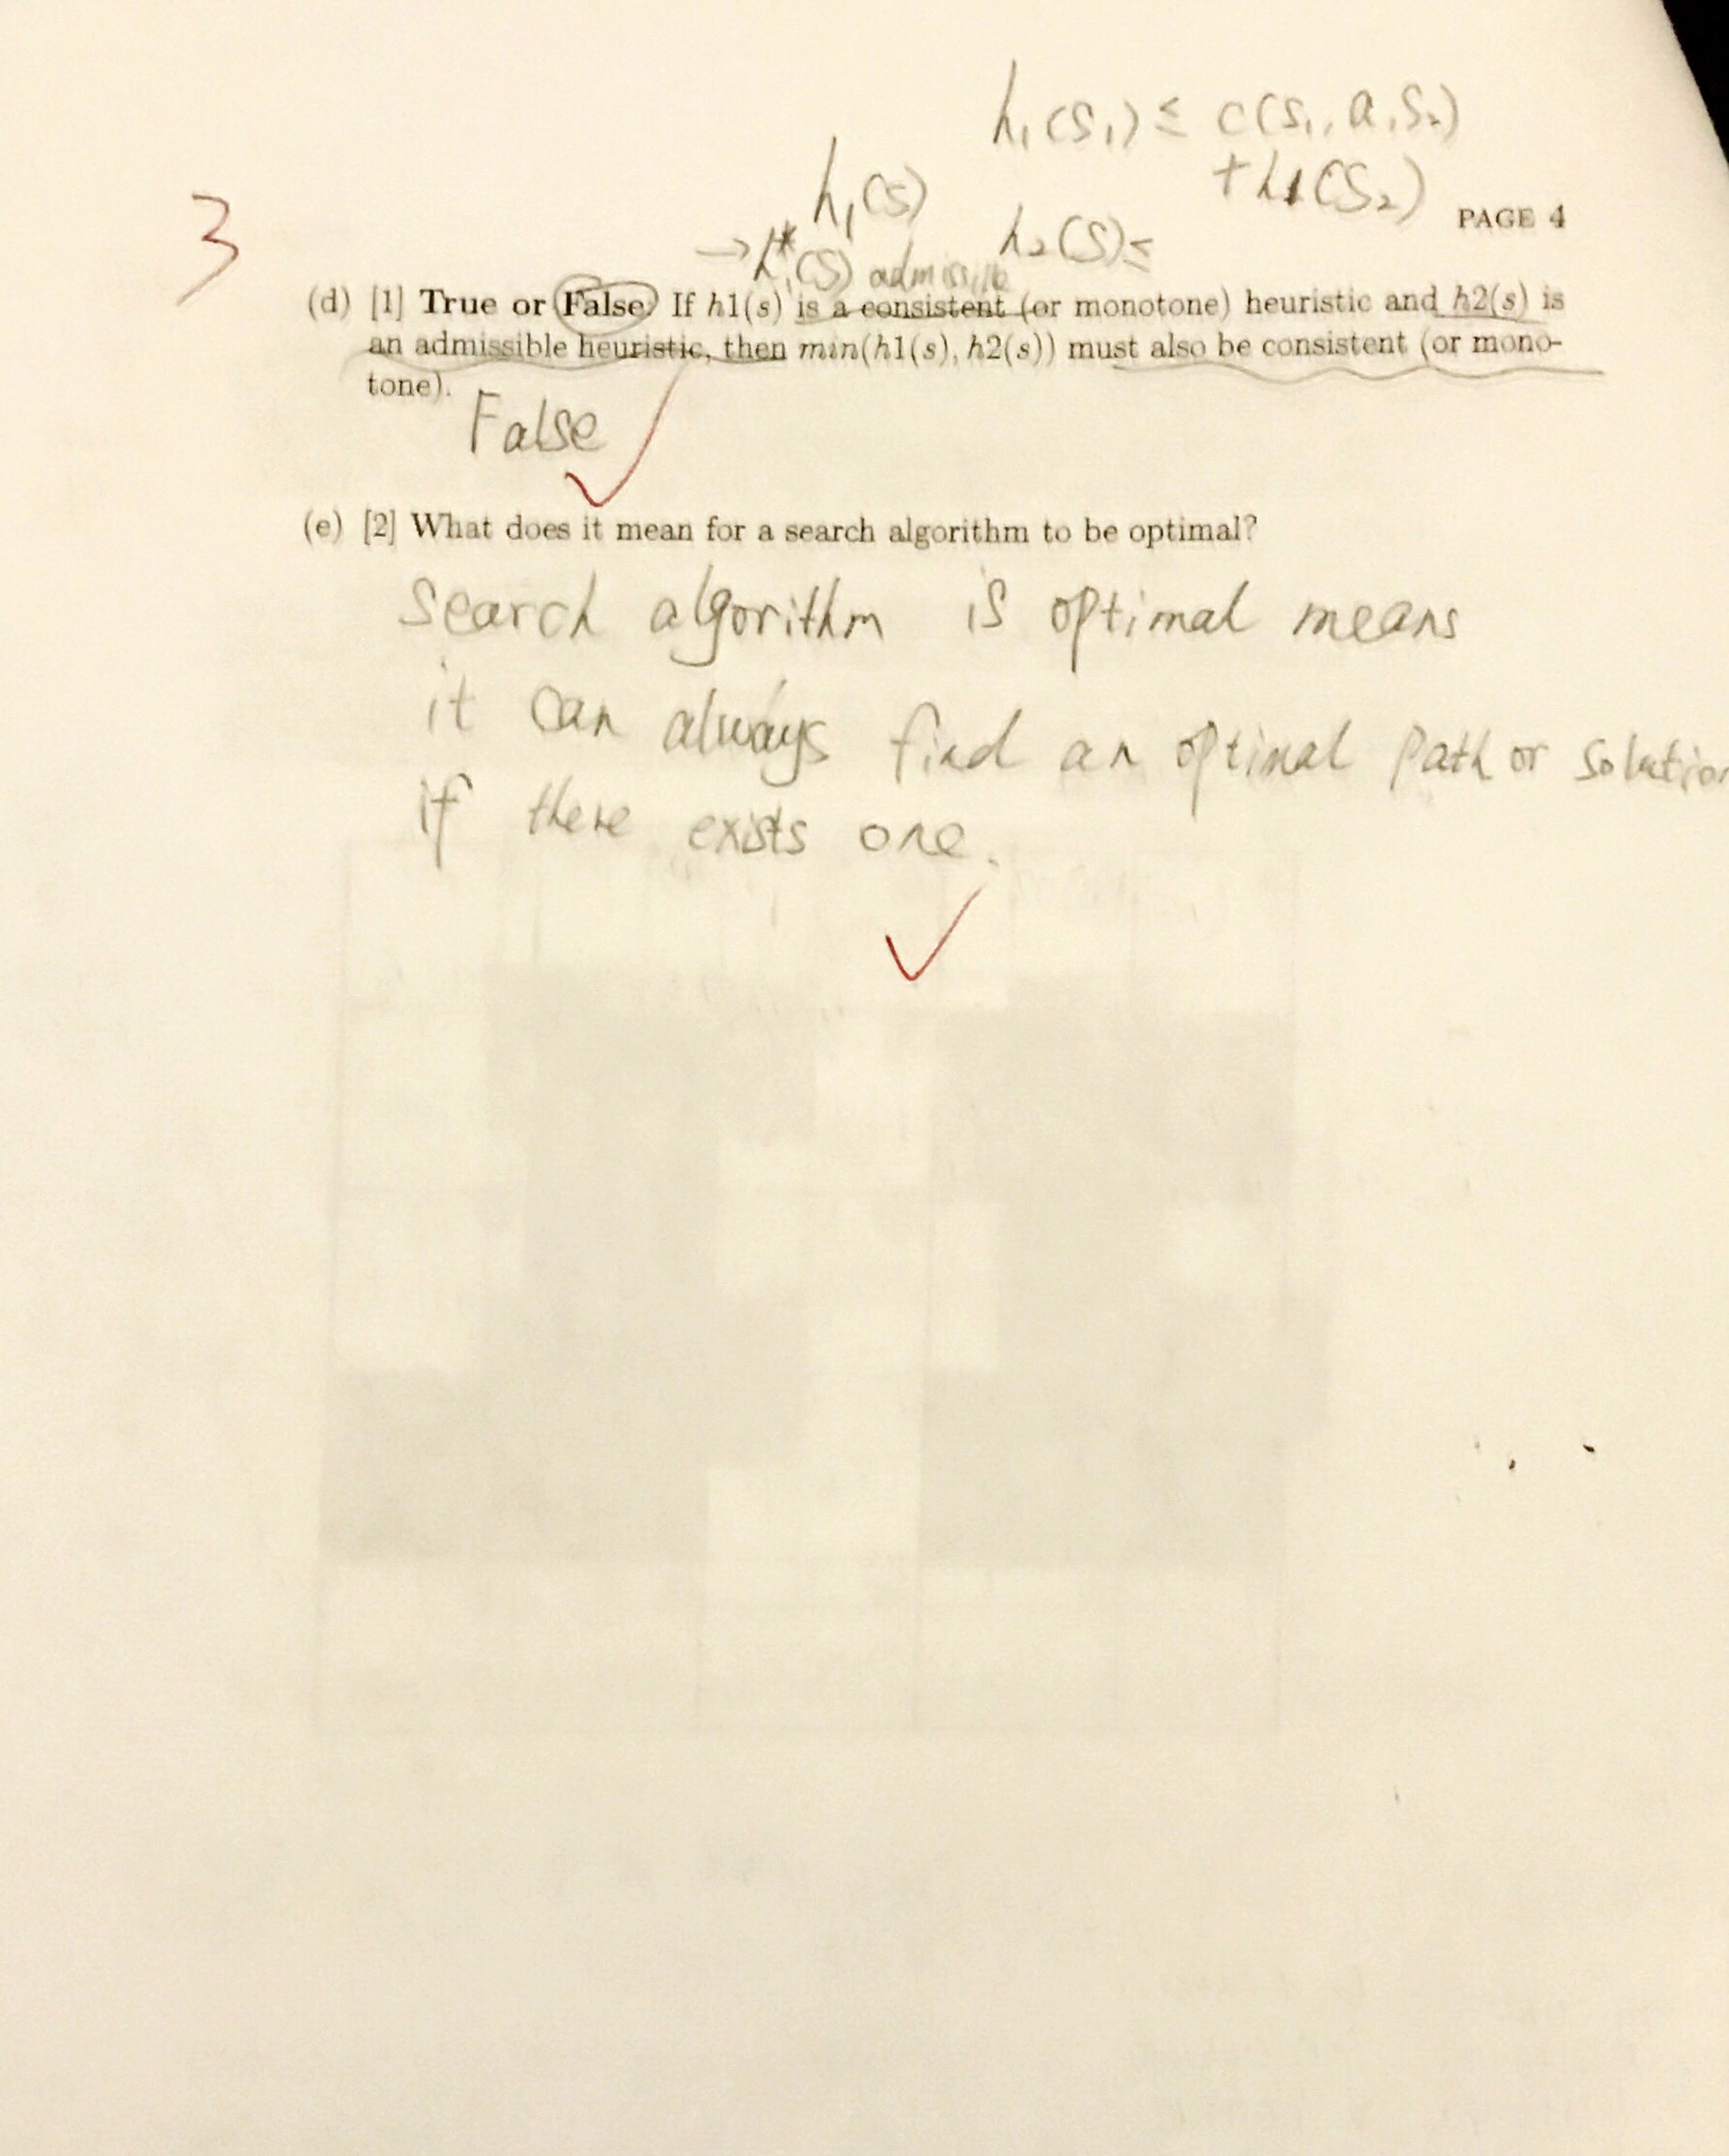 h₁(s₁) ≤ c(s₁, a, s₂)
+ h₁(s₂)
h₁(s)
3
PAGE 4
→ h₁*(s) admissible h₂(s) ≤
(d) [1] True or False: If h1(s) is a consistent (or monotone) heuristic and h2(s) is
an admissible heuristic, then min(h1(s), h2(s)) must also be consistent (or mono-
tone).
False
(e) [2] What does it mean for a search algorithm to be optimal?
Search algorithm is optimal means
it can always find an optimal path or solution
if there exists one.